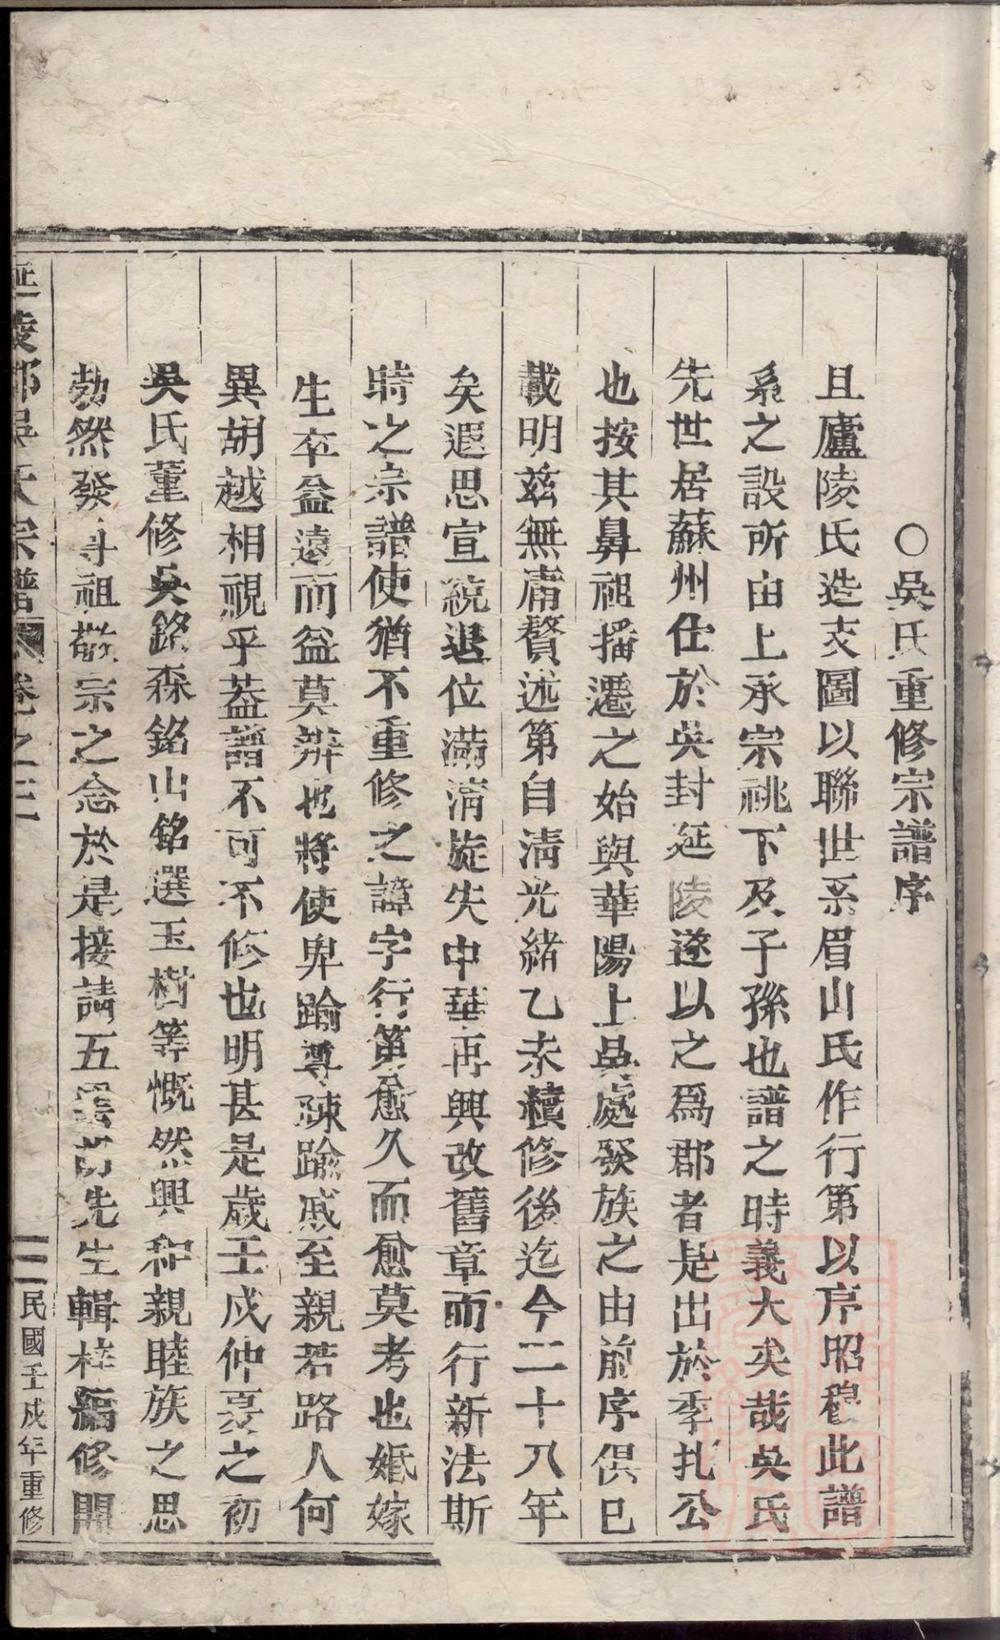 ○吳氏重修宗譜序
且廬陵氏造支圖以聯世系眉山氏作行第以序昭穆此譜
系之設所由上承宗祧下及子孫也譜之時義大矣哉吳氏
先世居蘇州仕於吳封延陵遂以之爲郡者是出於季扎公
也按其鼻祖播遷之始與華陽上吳處發族之由前序俱已
載明茲無庸贅述第自清光緒乙未續修後迄今二十八年
矣遐思宣統退位滿清旋失中華再興改舊章而行新法斯
時之宗譜使猶不重修之諱字行第愈久而愈莫考也婚嫁
生卒益遠而益莫辨也將使卑踰尊疎踰戚至親若路人何
異胡越相視乎葢譜不可不修也明甚是歲壬戌仲夏之初
吳氏董修吳銘森銘山銘選玉樹等慨然興和親睦族之思
勃然發尊祖敬宗之念於是接請五先生輯梓編修開
延陵郡吳氏宗譜 卷之三 二 民國壬戌年重修